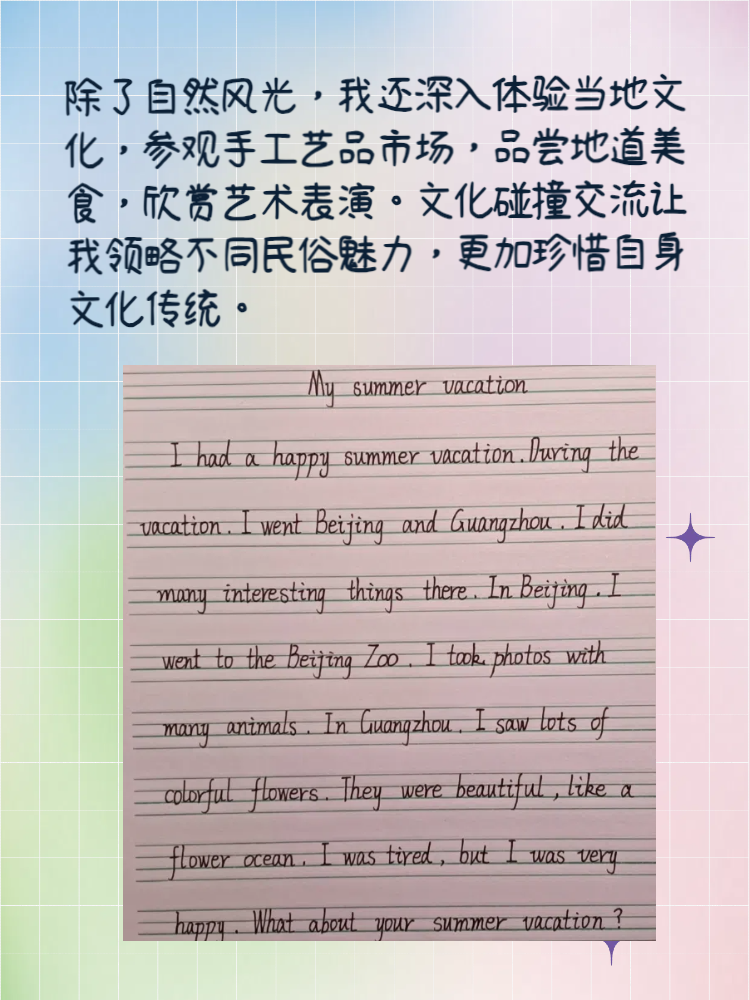 除了自然风光，我还深入体验当地文
化，参观手工艺品市场，品尝地道美
食，欣赏艺术表演。文化碰撞交流让
我领略不同民俗魅力，更加珍惜自身
文化传统。
My summer vacation
I had a happy summer vacation. During the
vacation. I went Beijing and Guangzhou. I did
many interesting things there. In Beijing. I
went to the Beijing Zoo. I took photos with
many animals. In Guangzhou. I saw lots of
colorful flowers. They were beautiful, like a
flower ocean. I was tired, but I was very
happy. What about your summer vacation?